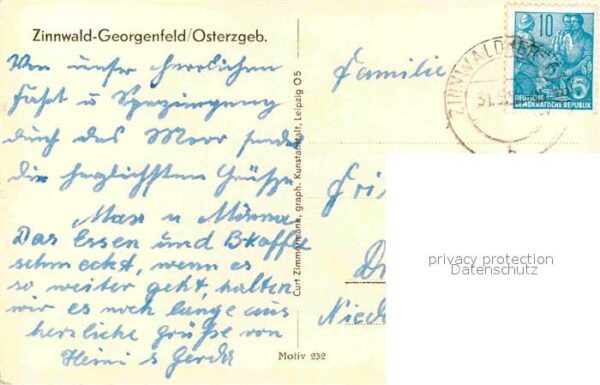 Zinnwald-Georgenfeld/Osterzgeb.
Von unser herrlichen
Fahrt u Spaziergang
durch das Moor senden
die herzlichsten Grüße
Max u
Das Essen und B-Kaffee
schmeckt, wenn es
so weiter geht, halten
wir es noch lange aus
herzliche grüße von
Heini & Gerda
Curt Zimmermann, graph. Kunstanstalt, Leipzig O 5
Motiv 232
Familie
Fri
Nied
10
5
DEUTSCHE
DEMOKRATISCHE REPUBLIK
ZINNWALD
31.5
privacy protection
Datenschutz